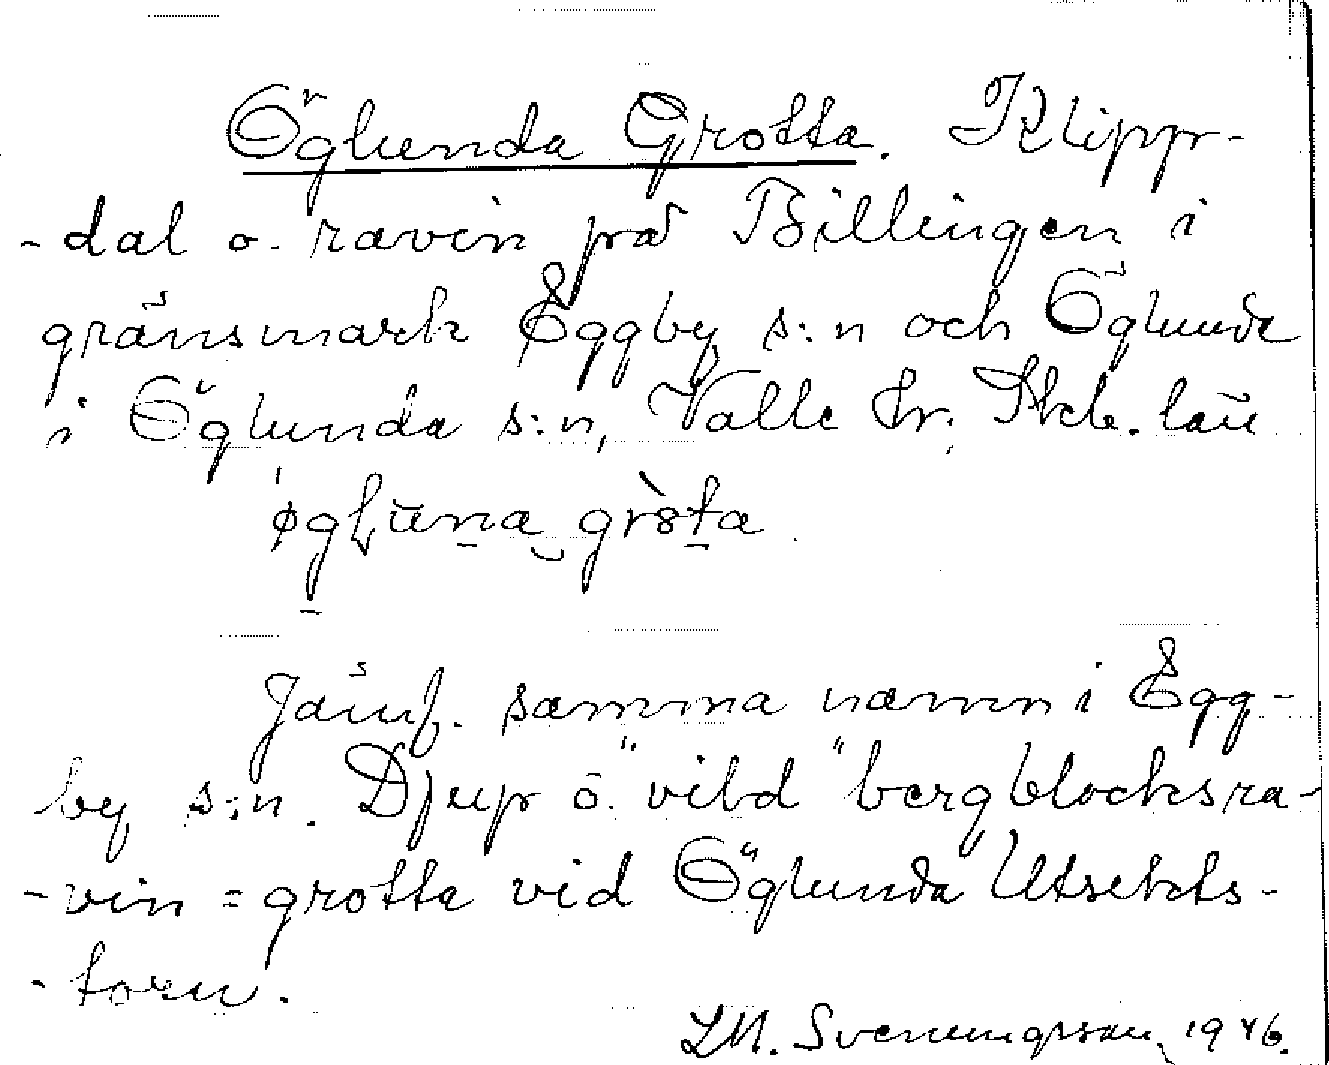 Öglunda Grotta. Klipp-
-dal o. ravin på Billingen i
gränsmark Eggby s:n och Öglunda
i Öglunda s:n, Valle hr, Skb. län
Jämf. samma namn i Egg-
by s:n. Djup o. "vild" bergblocksra-
-vin = grotta vid Öglunda Utsikts-
-torn.
Svenungsson, 1946.